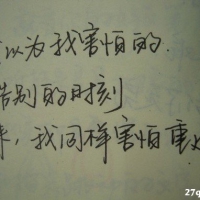 以为我害怕的
告别的时刻
来，我同样害怕重
27q